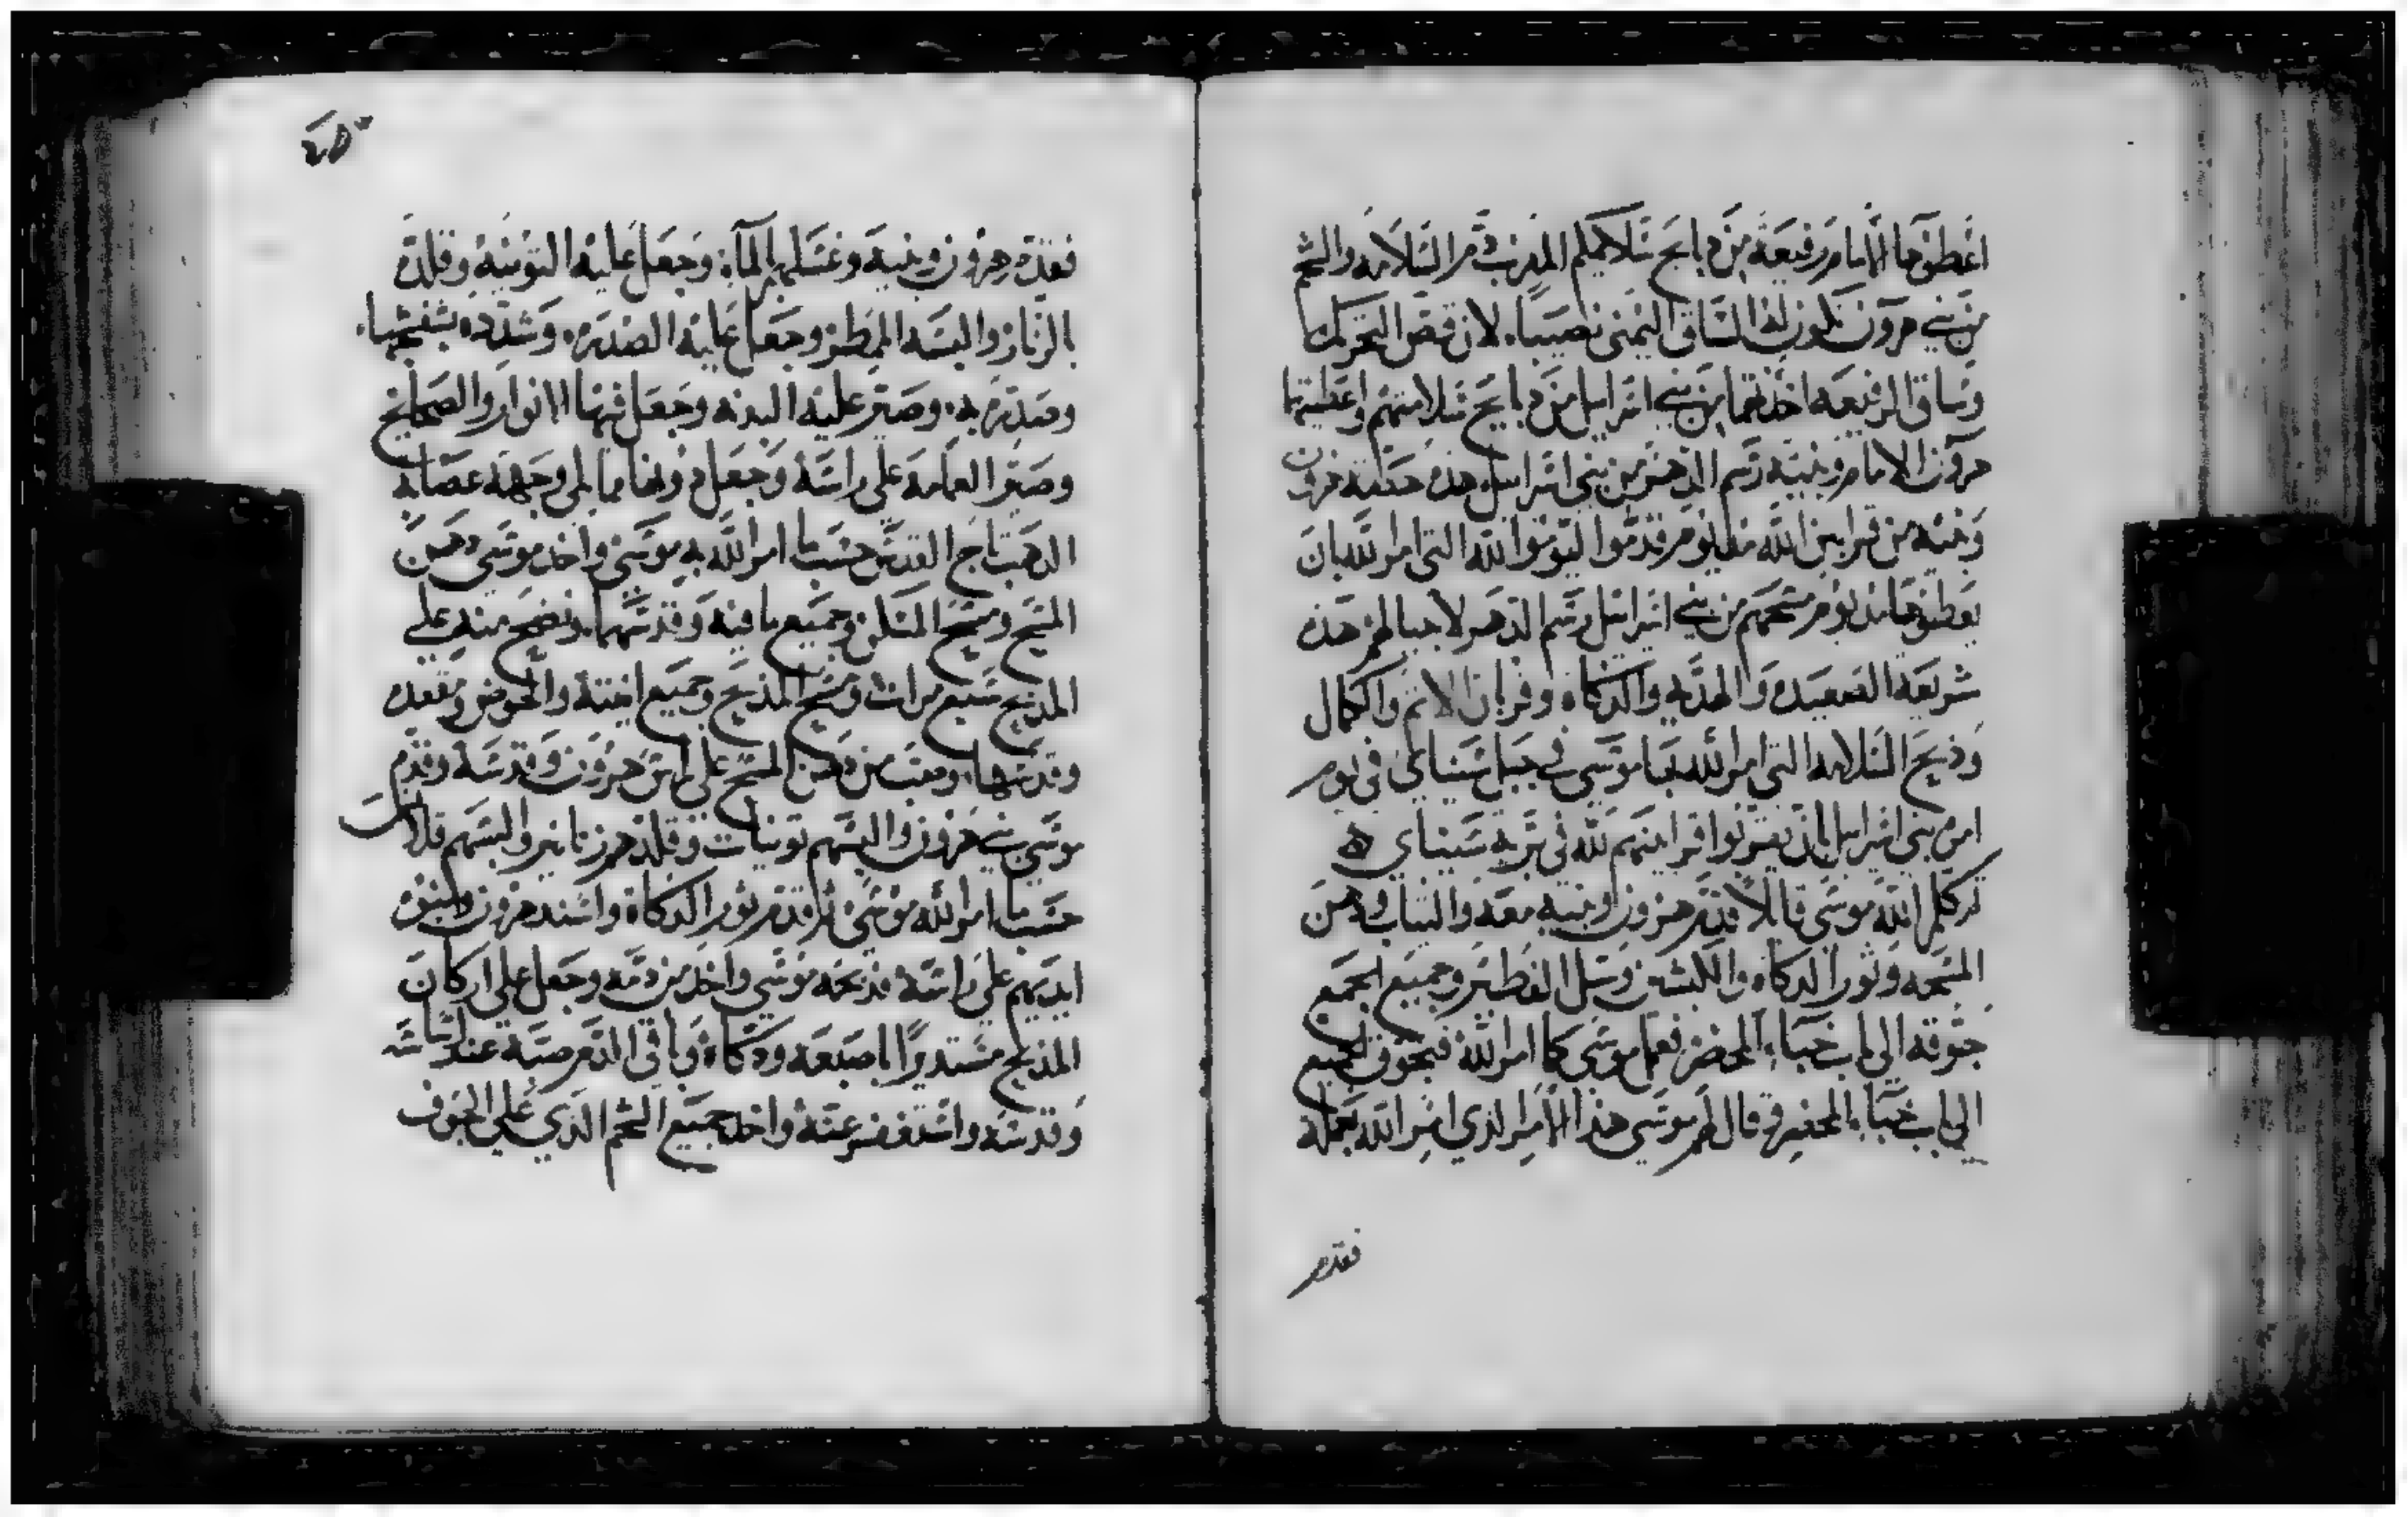 اعطوها للامام رفيعة من دبايح سلامكم المقرب دم السلامه والشحم
من بني هرون تكون له الساق اليمنى نصيبا، لان قص التحريك
وساق الرفيعه اخذتهما من بني اسرايل من دبايح سلامتهم واعطيتها
هرون الامام وبنيه رسم الدهر من بني اسرايل هذه حصة هرون
وبنيه من قرابين الله مند يوم قدموا ليؤموا لله التي امر الله بان
يعطوها مند يوم مسحهم من بني اسرايل رسم الدهر لاجيالهم هذه
شريعة الصعيده والهديه والدكاه وقربان الاثم والكمال
وذبح السلامه التي امر الله بها موسى في جبل سيناي في يوم
امره بني اسرايل بان يقربوا قرابينهم لله في برية سيناي ه
ثم كلم الله موسى قايلا قدم هرون وبنيه معه والثياب ودهن
المسحه وثور الدكاه والكبشين وسل الفطير وجميع الجمع
جوقه الى باب خباء المحضر فعمل موسى كما امر الله فتجوق الجميع
الى باب خباء المحضر فقال لهم موسى هذا الامر الذي امر الله بعمله
فقدم
فقدم هرون وبنيه وغسلهم بالماء وجعل عليه التونيه وقلده
بالزنار والبسه الممطر وجعل عليه الصدره وشدده بشفشجها
وصدره به وصير عليه البدنه وجعل فيها الانوار والصحايح
وصير العمامه على راسه وجعل دونها مما يلي وجهه عصابة
الدهب تاج القدس حسب ما امر الله به موسى واخد موسى دهن
المسح ومسح المسكن وجميع ما فيه وقدسهما ونضح منه على
المذبح سبع مرات ومسح المذبح وجميع انيته والحوض ومقعده
وقدسها وصب من دهن المسح على راس هرون وقدسه وقدم
موسى بني هرون والبسهم تونيات وقلدهم زنانير والبسهم قلانس
حسب ما امر الله موسى ثم قدم ثور الدكاه واسند هرون وبنوه
ايديهم على راسه فدبحه موسى واخد من دمه وجعل على اركان
المذبح مستديرا باصبعه ودكاه وباقي الدم صبه عند اساسه
وقدسه واستغفر عنه واخد جميع الشحم الذي على الجوف